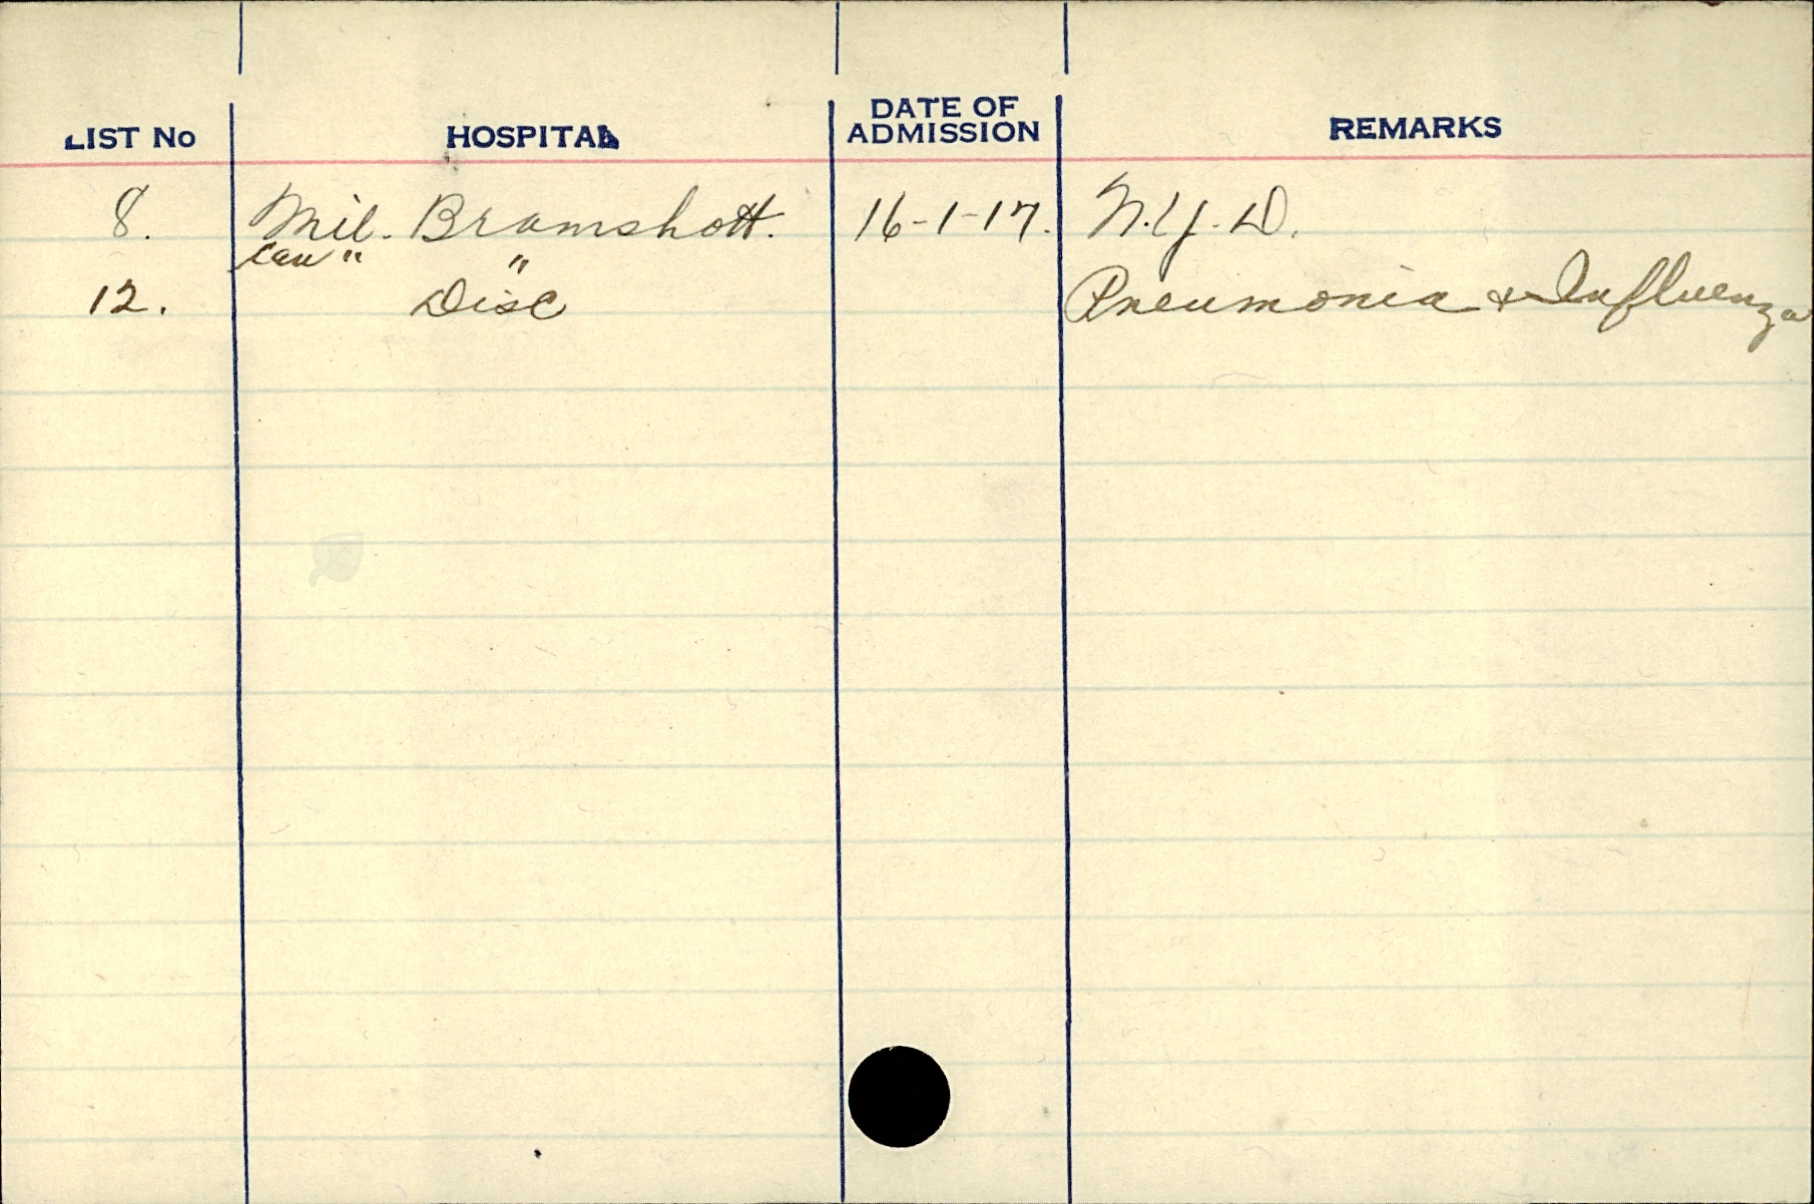 LIST No HOSPITAL DATE OF ADMISSION REMARKS
8. Mil. Bramshott. 16-1-17. N.Y.D.
Can " "
12. Disc Pneumonia & Influenza